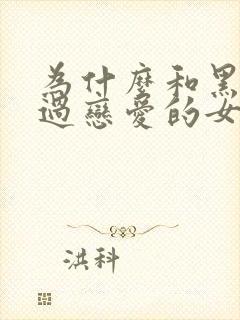 為什麼和黑
過戀愛的女
洪科